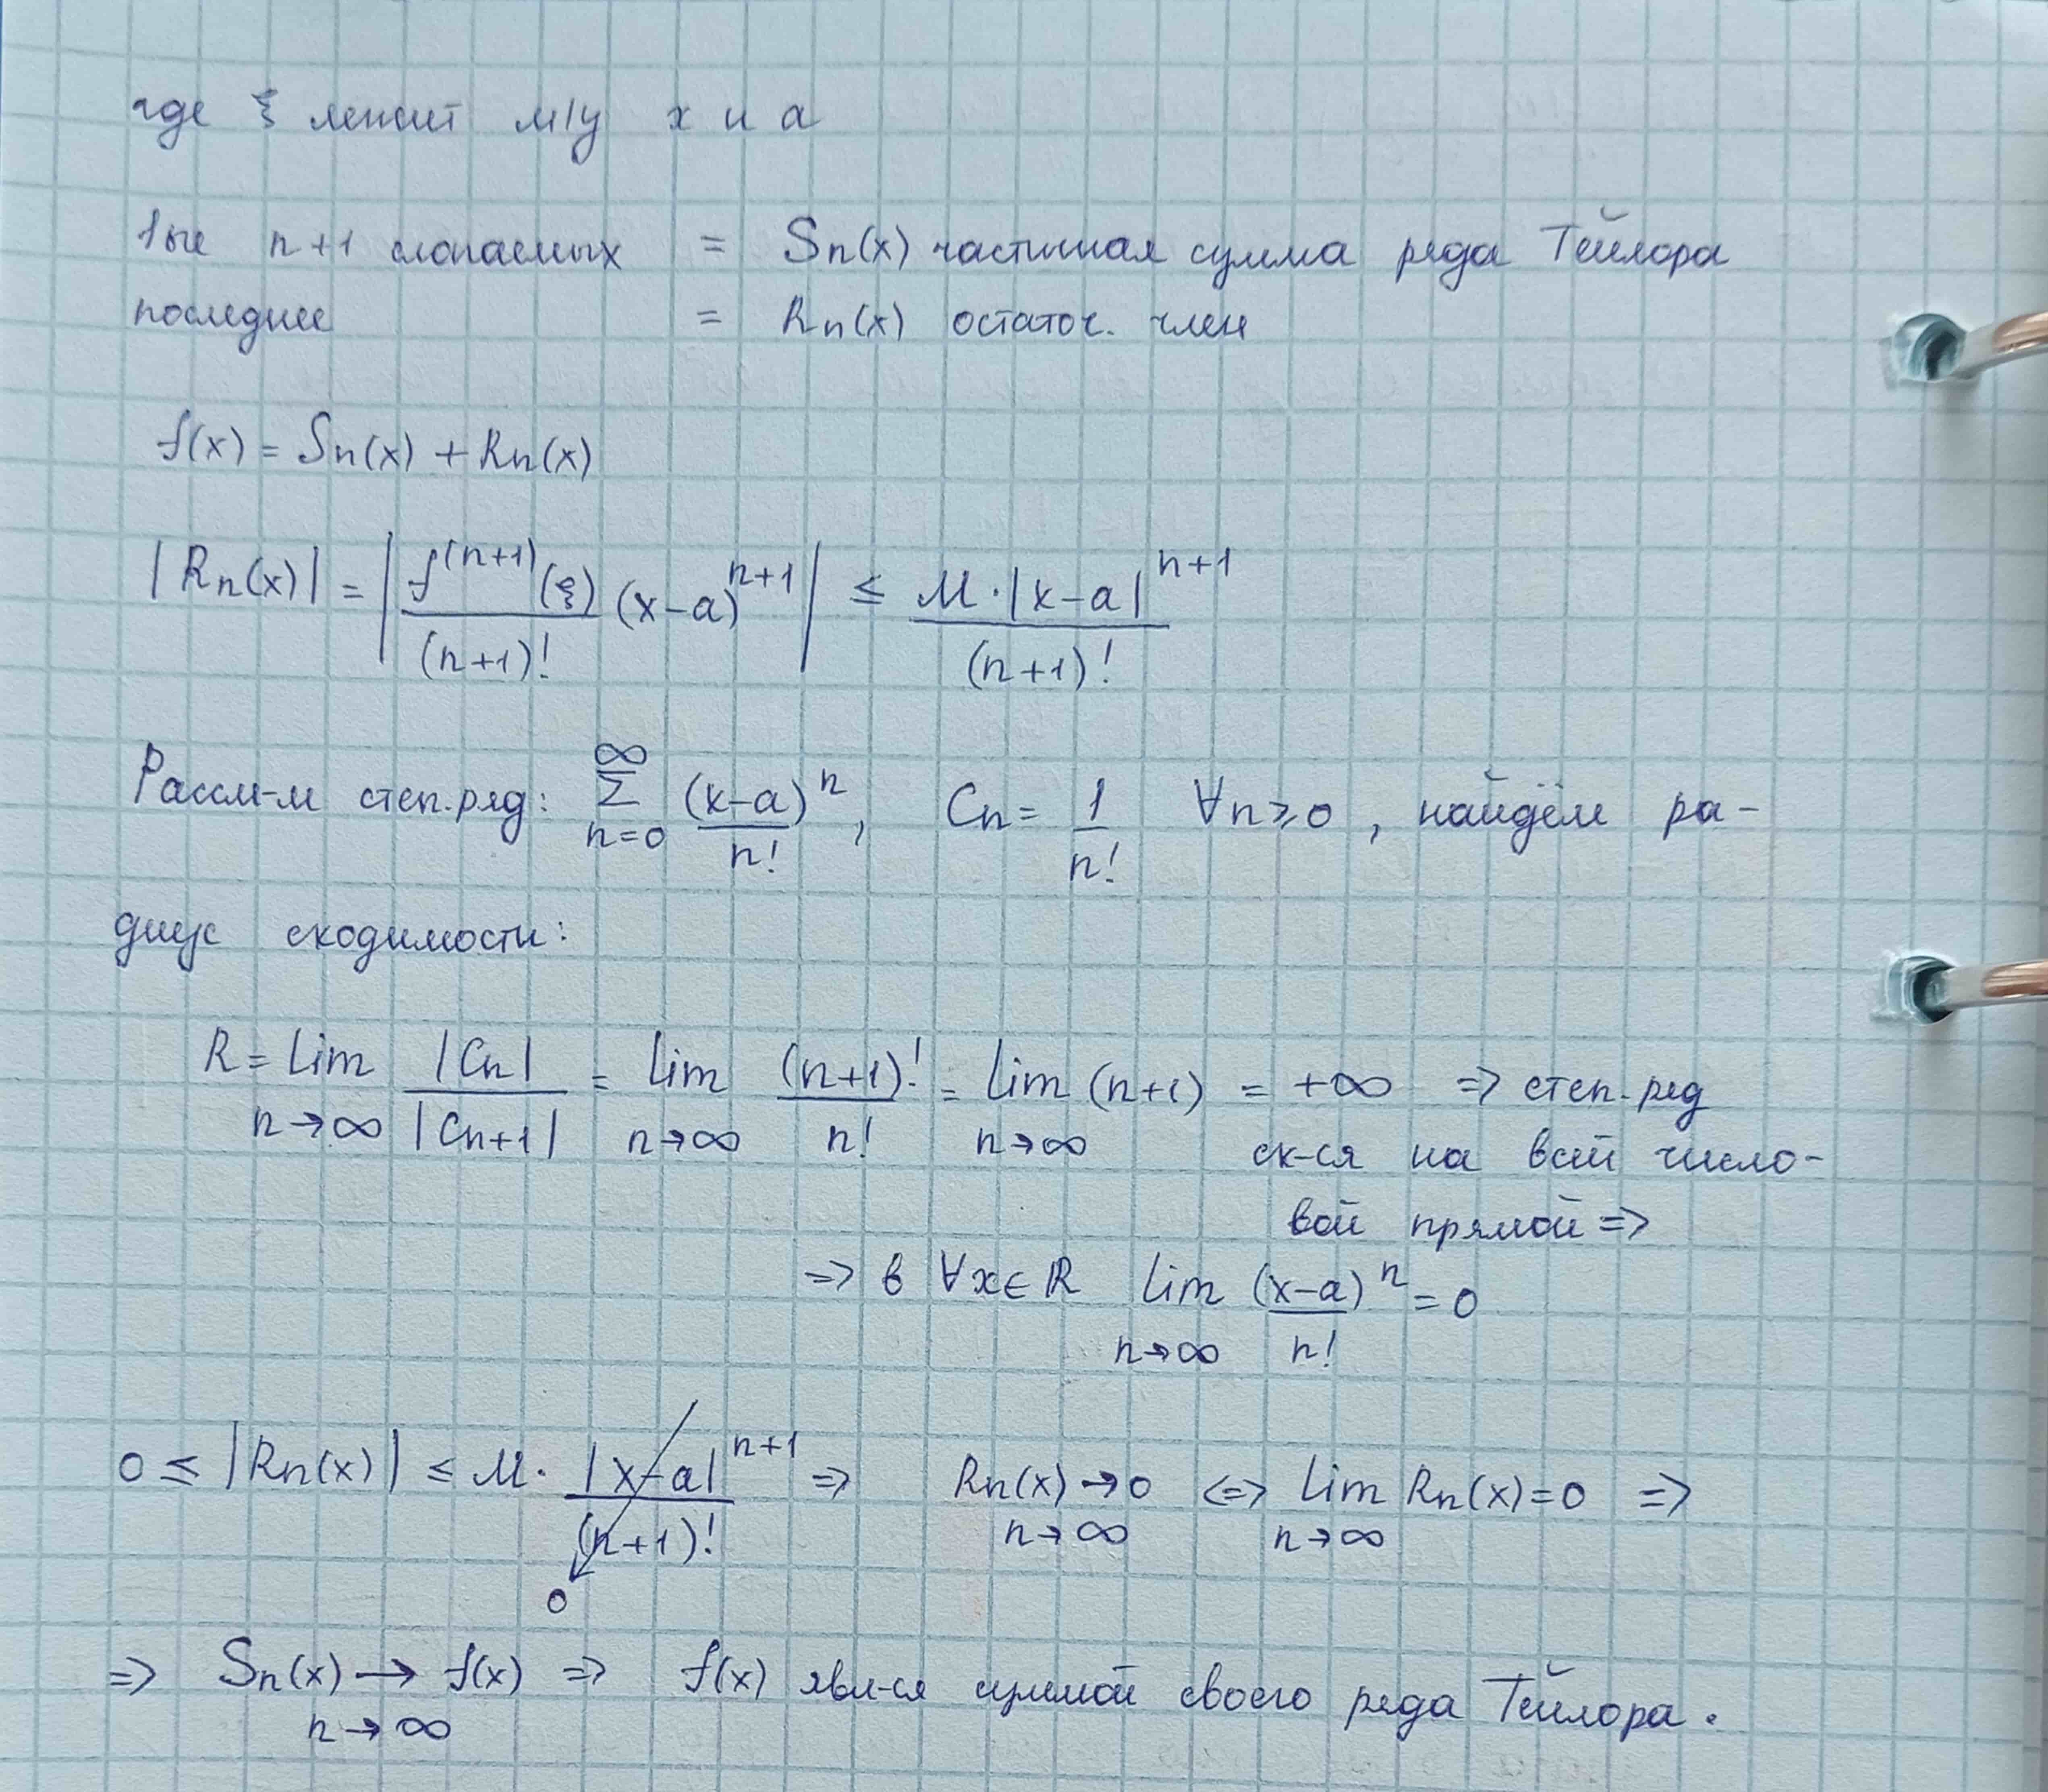 где ξ лежит м/у x и a
1ые n+1 слагаемых = Sn(x) частичная сумма ряда Тейлора
последнее = Rn(x) остаточ. член
f(x) = Sn(x) + Rn(x)
|Rn(x)| = | f^(n+1)(ξ) / (n+1)! (x-a)^n+1 | ≤ M·|x-a|^n+1 / (n+1)!
Рассм-м степ.ряд: ∑_{n=0}^∞ (x-a)^n / n! , Cn = 1 / n! ∀n≥0 , найдём ра-
диус сходимости:
R = lim_{n→∞} |Cn| / |Cn+1| = lim_{n→∞} (n+1)! / n! = lim_{n→∞} (n+1) = +∞ => степ. ряд
сх-ся на всей число-
вой прямой =>
=> в ∀x∈ℝ lim_{n→∞} (x-a)^n / n! = 0
0 ≤ |Rn(x)| ≤ M · |x-a|^n+1 / (n+1)! → 0 => Rn(x) → 0 n→∞ <=> lim_{n→∞} Rn(x) = 0 =>
=> Sn(x) → f(x) n→∞ => f(x) явл-ся суммой своего ряда Тейлора.